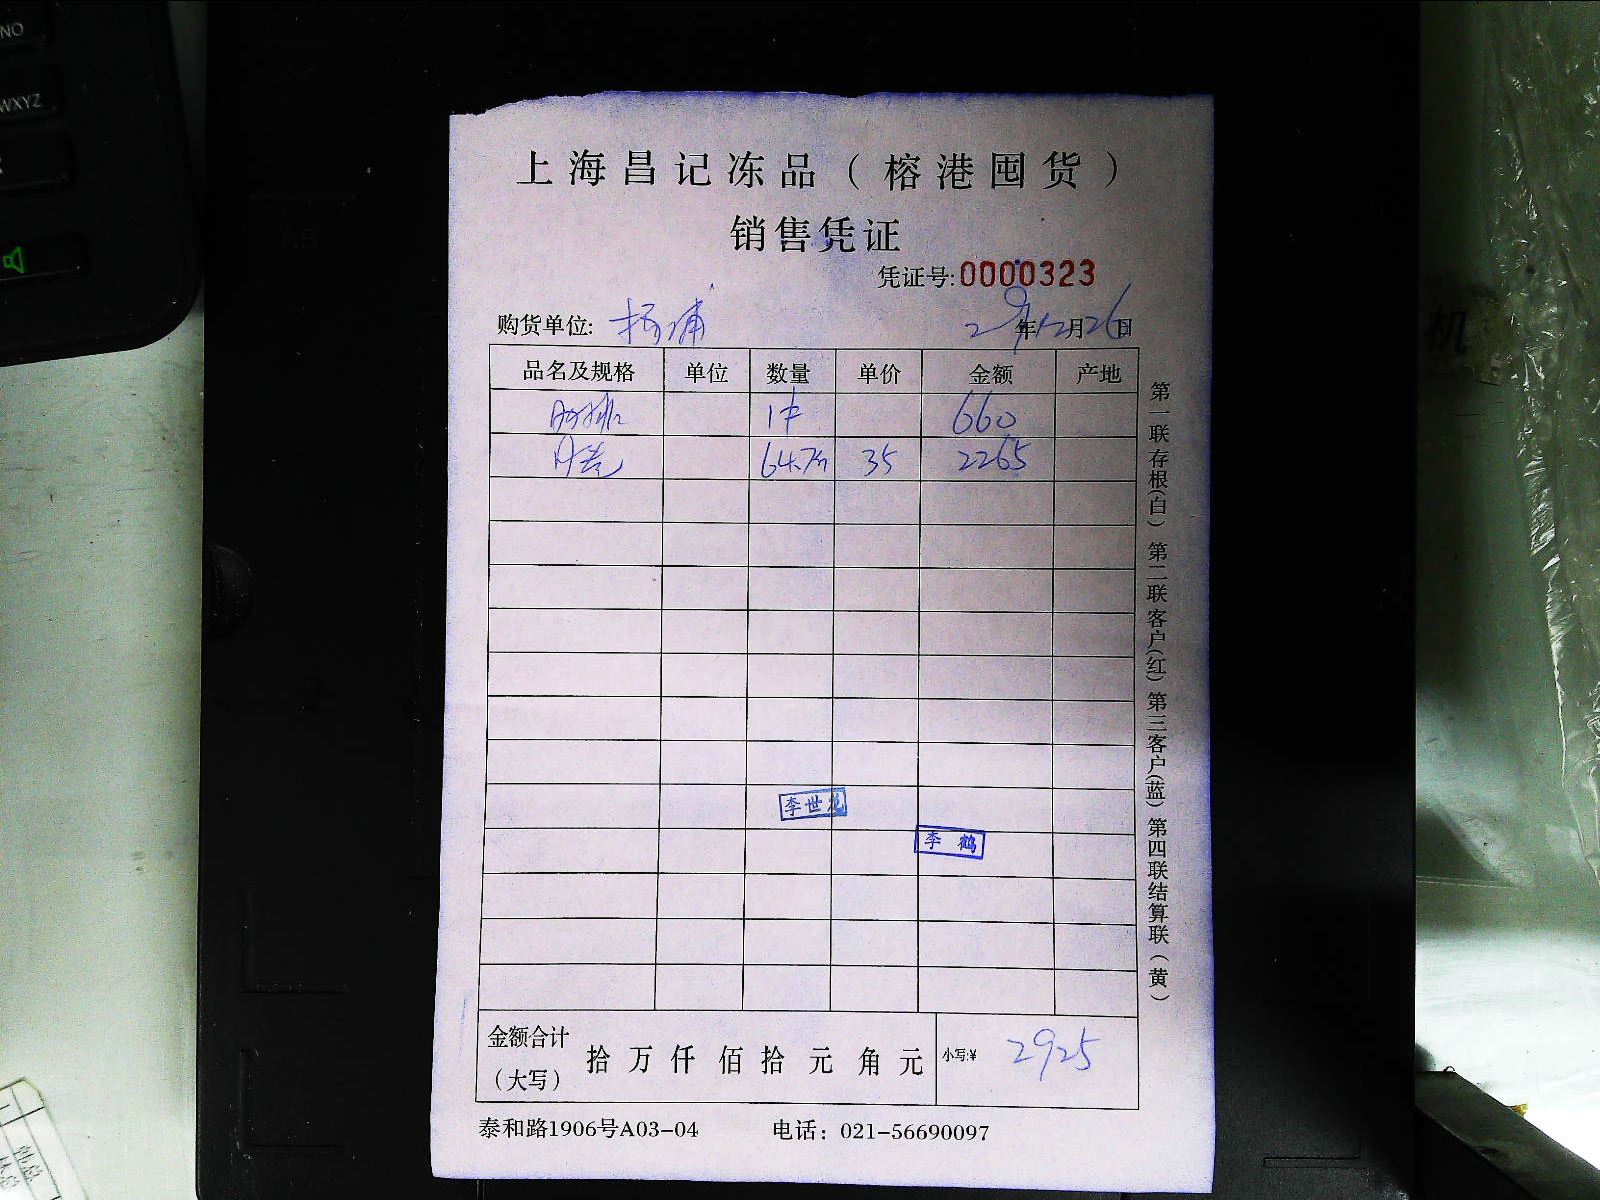 NO
WXYZ
上海昌记冻品（榕港囤货）
销售凭证
凭证号:0000323
购货单位: 杨浦
年12月26日
品名及规格 单位 数量 单价 金额 产地
1件 660
64.7斤 35 2265
李世龙
李鹤
金额合计（大写） 拾万仟佰拾元角元 小写:¥ 2925
泰和路1906号A03-04 电话：021-56690097
第一联存根（白）第二联客户（红）第三客户（蓝）第四联结算联（黄）
机